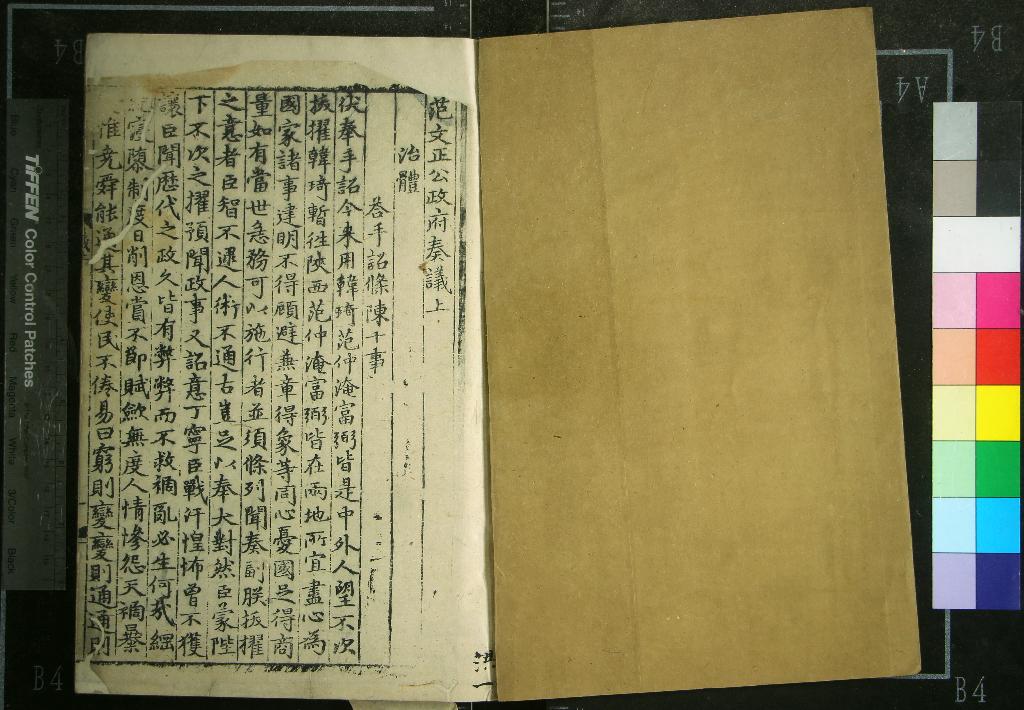 范文正公政府奏議上
治體
荅手詔條陳十事
伏奉手詔今来用韓琦范仲淹富弼皆是中外人望不次
拔擢韓琦暫徃陝西范仲淹富弼皆在兩地所宜盡心為
國家諸事建明不得顧避兼章得象等同心憂國足得商
量如有當世急務可以施行者並須條列聞奏副朕拔擢
之意者臣智不逮人術不通古豈足以奉大對然臣蒙陛
下不次之擢預聞政事又詔意丁寧臣戰汗惶怖曾不獲
讓臣聞歷代之政久皆有弊弊而不救禍亂必生何㢤綱
寖隳制度日削恩賞不節賦歛無度人情慘怨天禍暴
惟堯舜能通其變使民不倦易曰窮則變變則通通則
TIFFEN Color Control Patches
Blue
Cyan
Green
Yellow
Red
Magenta
White
3/Color
Black
B4
B4
A4
B4
B4